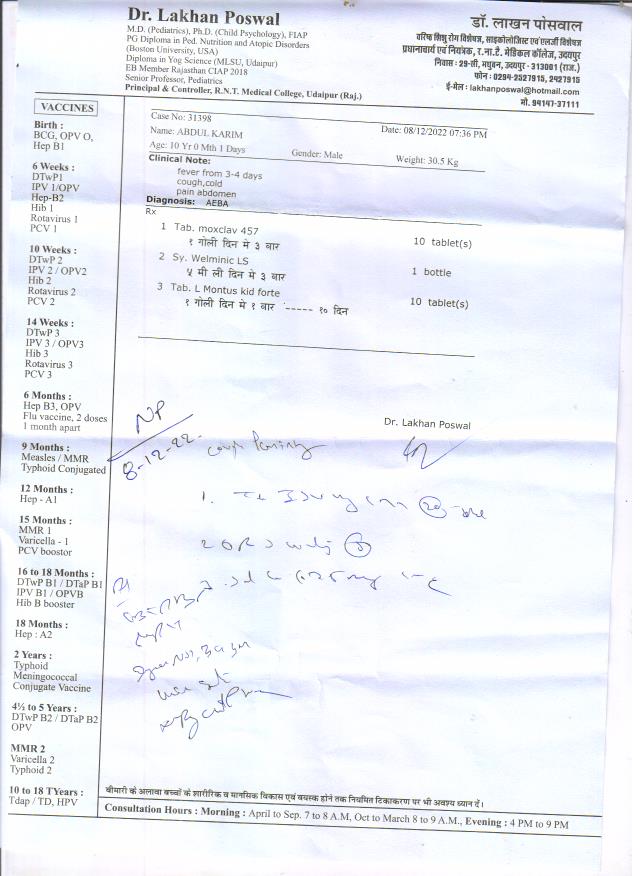 Dr. Lakhan Poswal
M.D. (Pediatrics), Ph.D. (Child Psychology), FIAP
PG Diploma in Ped. Nutrition and Atopic Disorders
(Boston University, USA)
Diploma in Yog Science (MLSU, Udaipur)
EB Member Rajasthan CIAP 2018
Senior Professor, Pediatrics
Principal & Controller, R.N.T. Medical College, Udaipur (Raj.)
डॉ. लाखन पोसवाल
वरिष्ठ शिशु रोग विशेषज्ञ, साइकोलोजिस्ट एवं एलर्जी विशेषज्ञ
प्रधानाचार्य एवं नियंत्रक, र.ना.टे. मेडिकल कॉलेज, उदयपुर
निवास : 29-सी, मधुवन, उदयपुर - 313001 (राज.)
फोन : 0294-2527915, 2427915
ई-मेल : lakhanposwal@hotmail.com
मो. 94147-37111
VACCINES
Birth :
BCG, OPV O,
Hep B1
6 Weeks :
DTwP1
IPV 1/OPV
Hep-B2
Hib 1
Rotavirus 1
PCV 1
10 Weeks :
DTwP 2
IPV 2 / OPV2
Hib 2
Rotavirus 2
PCV 2
14 Weeks :
DTwP 3
IPV 3 / OPV3
Hib 3
Rotavirus 3
PCV 3
6 Months :
Hep B3, OPV
Flu vaccine, 2 doses
1 month apart
9 Months :
Measles / MMR
Typhoid Conjugated
12 Months :
Hep - A1
15 Months :
MMR 1
Varicella - 1
PCV boostor
16 to 18 Months :
DTwP B1 / DTaP B1
IPV B1 / OPVB
Hib B booster
18 Months :
Hep : A2
2 Years :
Typhoid
Meningococcal
Conjugate Vaccine
4½ to 5 Years :
DTwP B2 / DTaP B2
OPV
MMR 2
Varicella 2
Typhoid 2
10 to 18 TYears :
Tdap / TD, HPV
Case No: 31398
Name: ABDUL KARIM
Date: 08/12/2022 07:36 PM
Age: 10 Yr 0 Mth 1 Days
Gender: Male
Weight: 30.5 Kg
Clinical Note:
fever from 3-4 days
cough,cold
pain abdomen
Diagnosis: AEBA
Rx
1 Tab. moxclav 457 10 tablet(s)
१ गोली दिन मे ३ बार
2 Sy. Welminic LS 1 bottle
५ मी ली दिन मे ३ बार
3 Tab. L Montus kid forte 10 tablet(s)
१ गोली दिन मे १ बार ----- १० दिन
Dr. Lakhan Poswal
NP
8-12-22.
cough
1.
2 ORS
बीमारी के अलावा बच्चों के शारीरिक व मानसिक विकास एवं वयस्क होने तक नियमित टिकाकरण पर भी अवश्य ध्यान दें।
Consultation Hours : Morning : April to Sep. 7 to 8 A.M, Oct to March 8 to 9 A.M., Evening : 4 PM to 9 PM